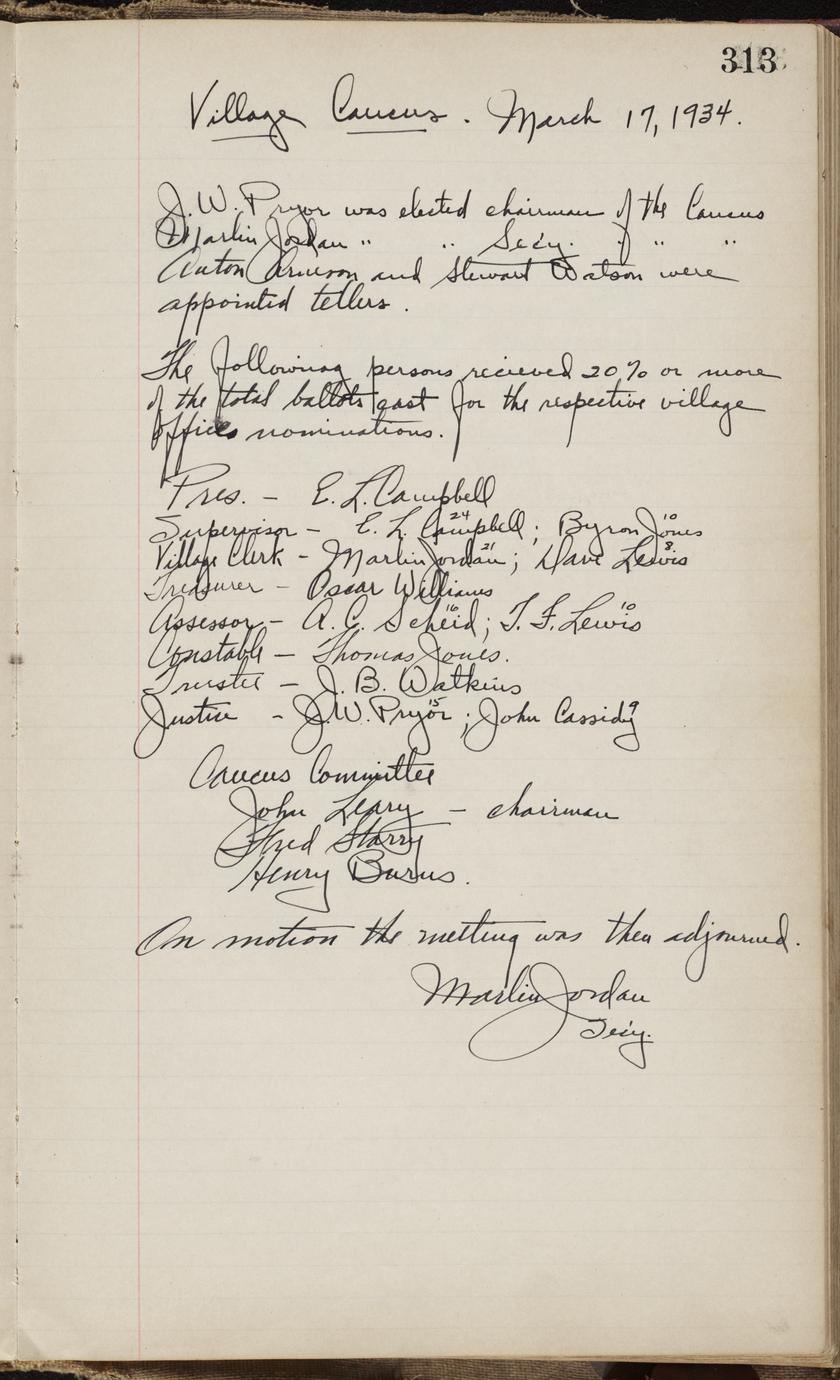 313
Village Caucus. March 17, 1934.
J. W. Pryor was elected chairman of the Caucus
Marlin Jordan " " Sec'y. of " "
Anton Arneson and Stewart Watson were
appointed tellers.
The following persons recieved 20% or more
of the total ballots cast for the respective village
offices nominations.
Pres. - E. L. Campbell
Supervisor - E. L. Campbell 24; Byron Jones 10
Village Clerk - Marlin Jordan 21; Dave Lewis 8
Treasurer - Oscar Williams
Assessor - A. C. Scheid 16; T. F. Lewis 10
Constable - Thomas Jones.
Trustee - J. B. Watkins
Justice - J. W. Pryor 15; John Cassidy 9
Caucus Committee
John Leary - chairman
Fred Starry
Henry Burns.
On motion the meeting was then adjourned.
Marlin Jordan
Sec'y.